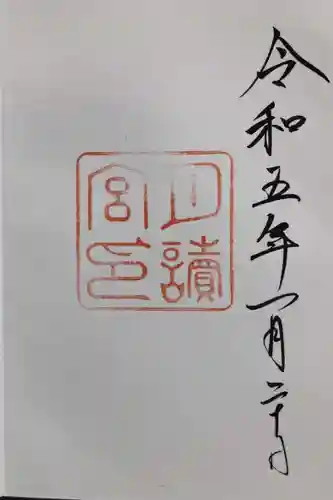 令和五年一月二十日
月讀
宮印